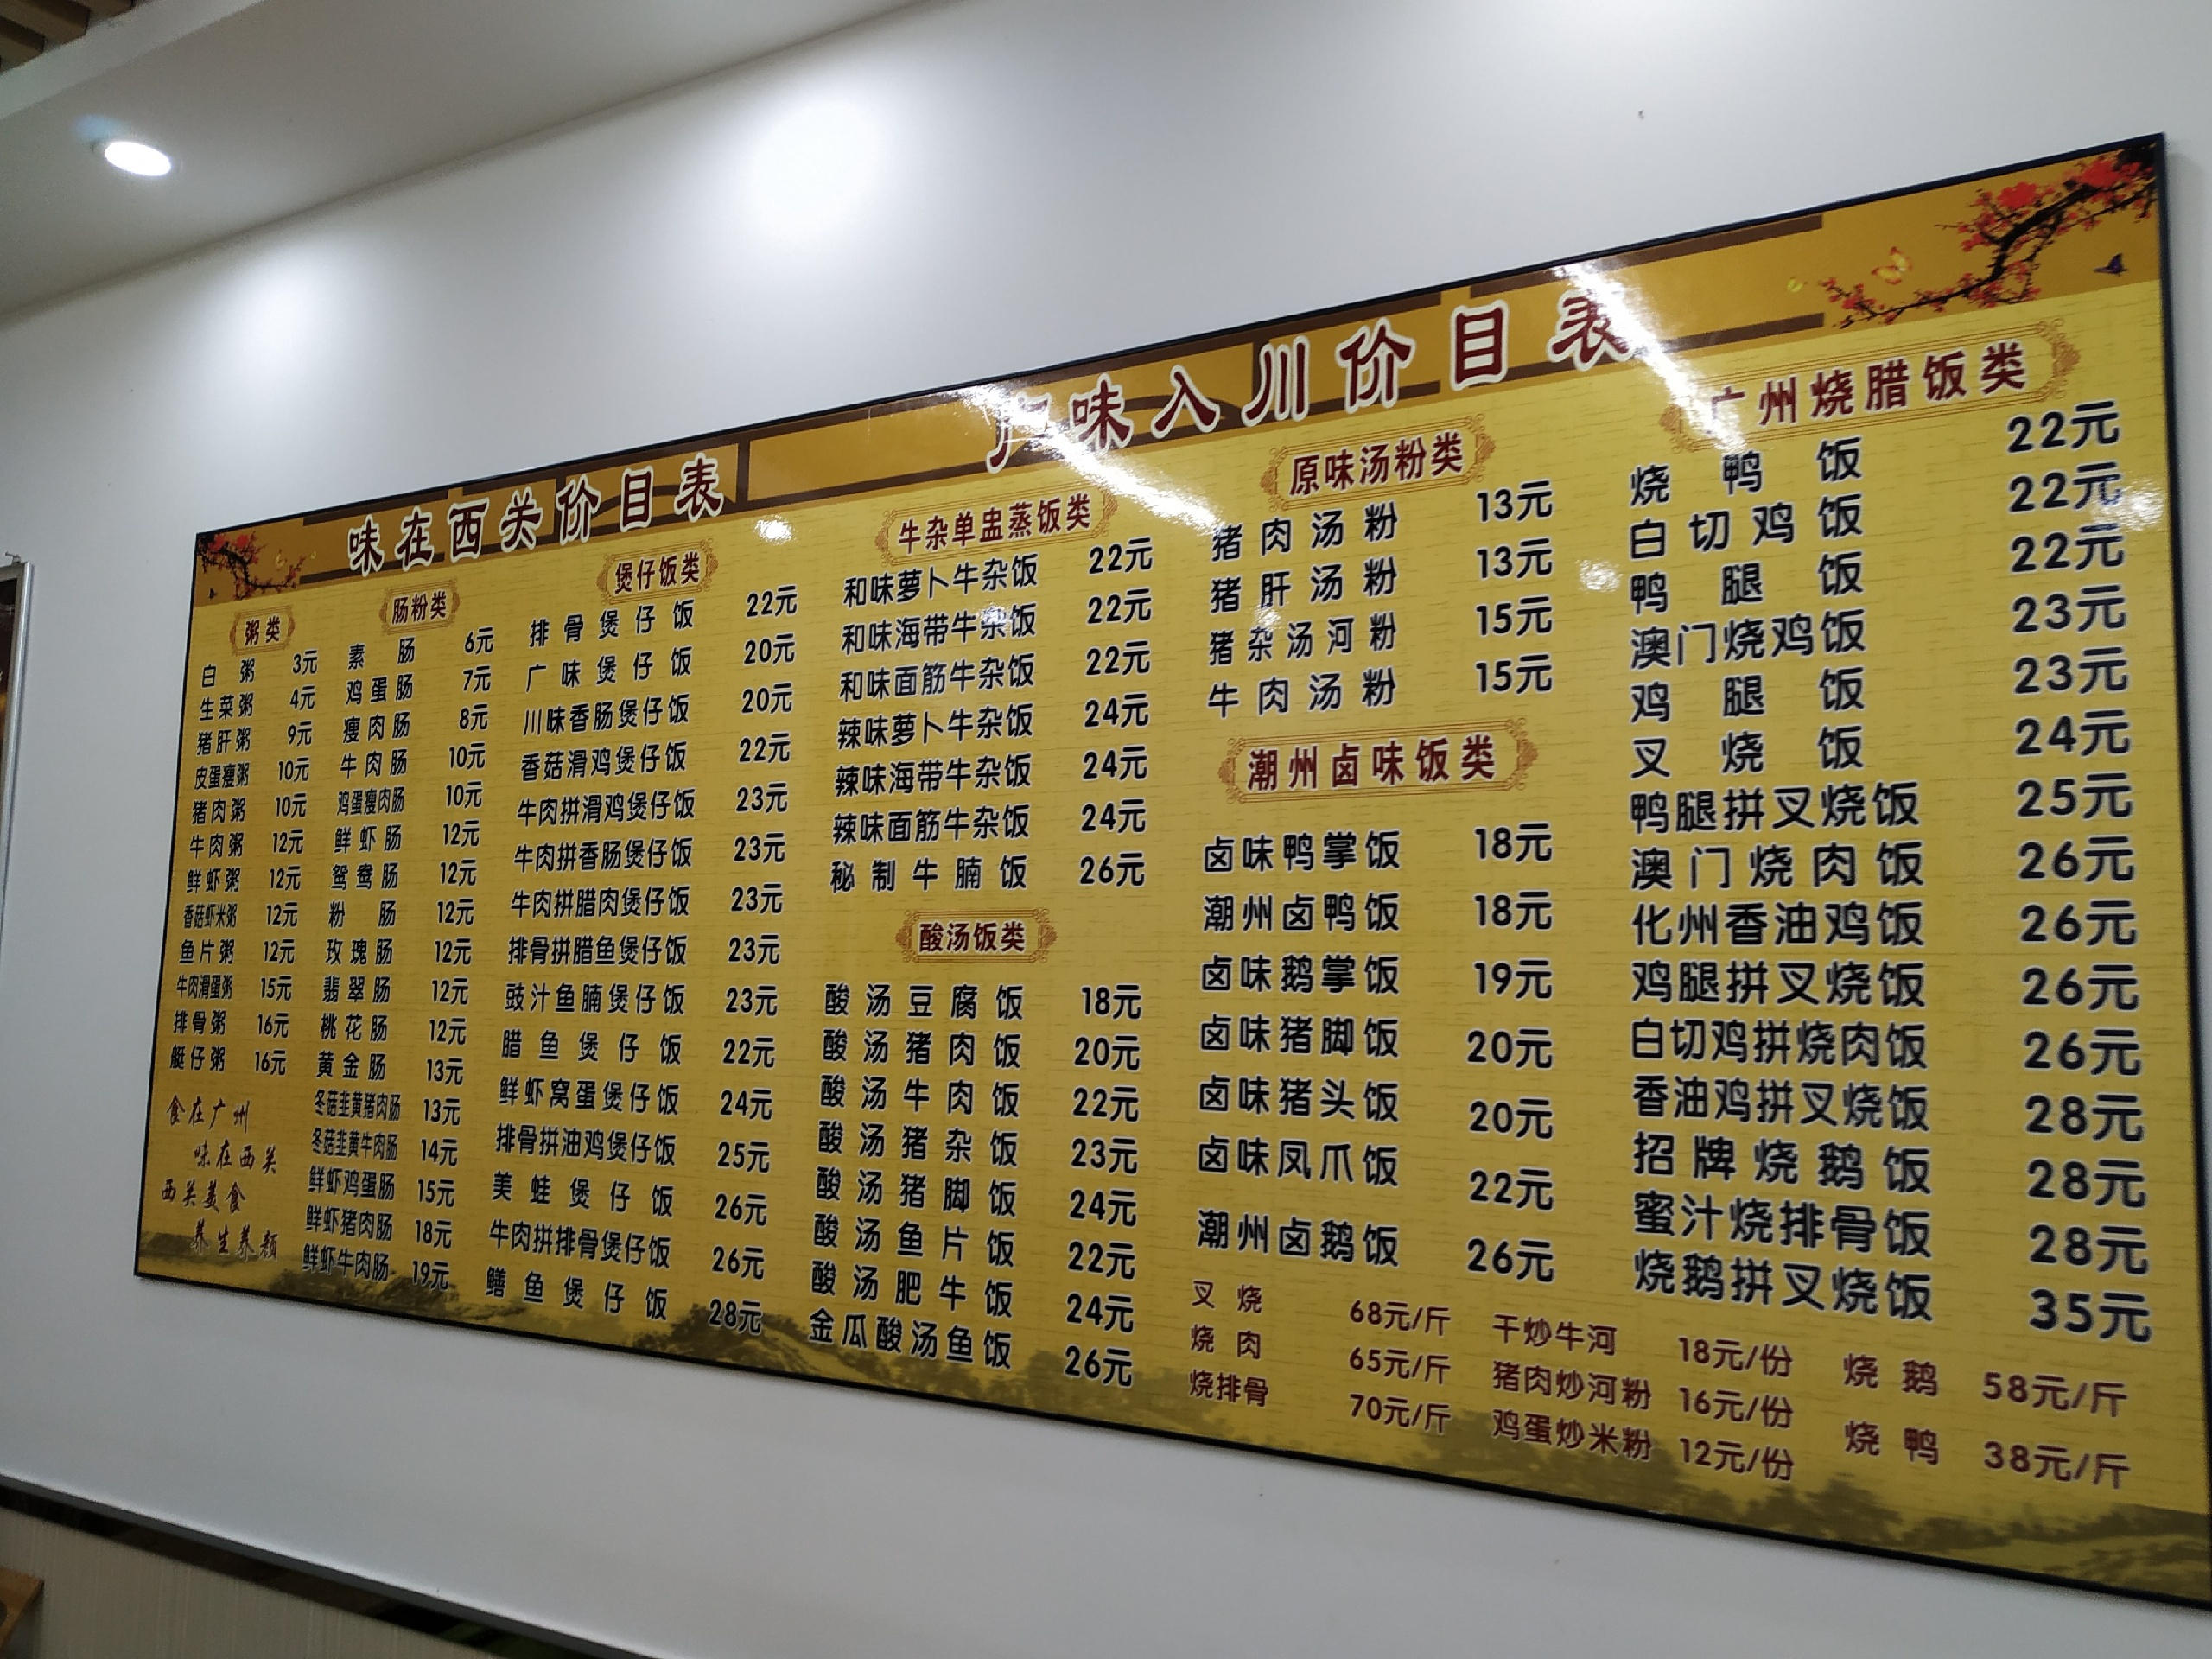 味在西关价目表
广味入川价目表
粥类
白粥 3元
生菜粥 4元
猪肝粥 9元
皮蛋瘦粥 10元
猪肉粥 10元
牛肉粥 12元
鲜虾粥 12元
香菇虾米粥 12元
鱼片粥 12元
牛肉滑蛋粥 15元
排骨粥 16元
艇仔粥 16元
食在广州
味在西关
西关美食
养生养颜
肠粉类
素肠 6元
鸡蛋肠 7元
瘦肉肠 8元
牛肉肠 10元
鸡蛋瘦肉肠 10元
鲜虾肠 12元
鸳鸯肠 12元
粉肠 12元
玫瑰肠 12元
翡翠肠 12元
桃花肠 12元
黄金肠 13元
冬菇韭黄猪肉肠 13元
冬菇韭黄牛肉肠 14元
鲜虾鸡蛋肠 15元
鲜虾猪肉肠 18元
鲜虾牛肉肠 19元
煲仔饭类
排骨煲仔饭 22元
广味煲仔饭 20元
川味香肠煲仔饭 20元
香菇滑鸡煲仔饭 22元
牛肉拼滑鸡煲仔饭 23元
牛肉拼香肠煲仔饭 23元
牛肉拼腊肉煲仔饭 23元
排骨拼腊鱼煲仔饭 23元
豉汁鱼腩煲仔饭 23元
腊鱼煲仔饭 22元
鲜虾窝蛋煲仔饭 24元
排骨拼油鸡煲仔饭 25元
美蛙煲仔饭 26元
牛肉拼排骨煲仔饭 26元
鳝鱼煲仔饭 28元
牛杂单盅蒸饭类
和味萝卜牛杂饭 22元
和味海带牛杂饭 22元
和味面筋牛杂饭 22元
辣味萝卜牛杂饭 24元
辣味海带牛杂饭 24元
辣味面筋牛杂饭 24元
秘制牛腩饭 26元
酸汤饭类
酸汤豆腐饭 18元
酸汤猪肉饭 20元
酸汤牛肉饭 22元
酸汤猪杂饭 23元
酸汤猪脚饭 24元
酸汤鱼片饭 22元
酸汤肥牛饭 24元
金瓜酸汤鱼饭 26元
原味汤粉类
猪肉汤粉 13元
猪肝汤粉 13元
猪杂汤河粉 15元
牛肉汤粉 15元
潮州卤味饭类
卤味鸭掌饭 18元
潮州卤鸭饭 18元
卤味鹅掌饭 19元
卤味猪脚饭 20元
卤味猪头饭 20元
卤味凤爪饭 22元
潮州卤鹅饭 26元
广州烧腊饭类
烧鸭饭 22元
白切鸡饭 22元
鸭腿饭 22元
澳门烧鸡饭 23元
鸡腿饭 23元
叉烧饭 24元
鸭腿拼叉烧饭 25元
澳门烧肉饭 26元
化州香油鸡饭 26元
鸡腿拼叉烧饭 26元
白切鸡拼烧肉饭 26元
香油鸡拼叉烧饭 28元
招牌烧鹅饭 28元
蜜汁烧排骨饭 28元
烧鹅拼叉烧饭 35元
叉烧 68元/斤 干炒牛河 18元/份 烧鹅 58元/斤
烧肉 65元/斤 猪肉炒河粉 16元/份 烧鸭 38元/斤
烧排骨 70元/斤 鸡蛋炒米粉 12元/份